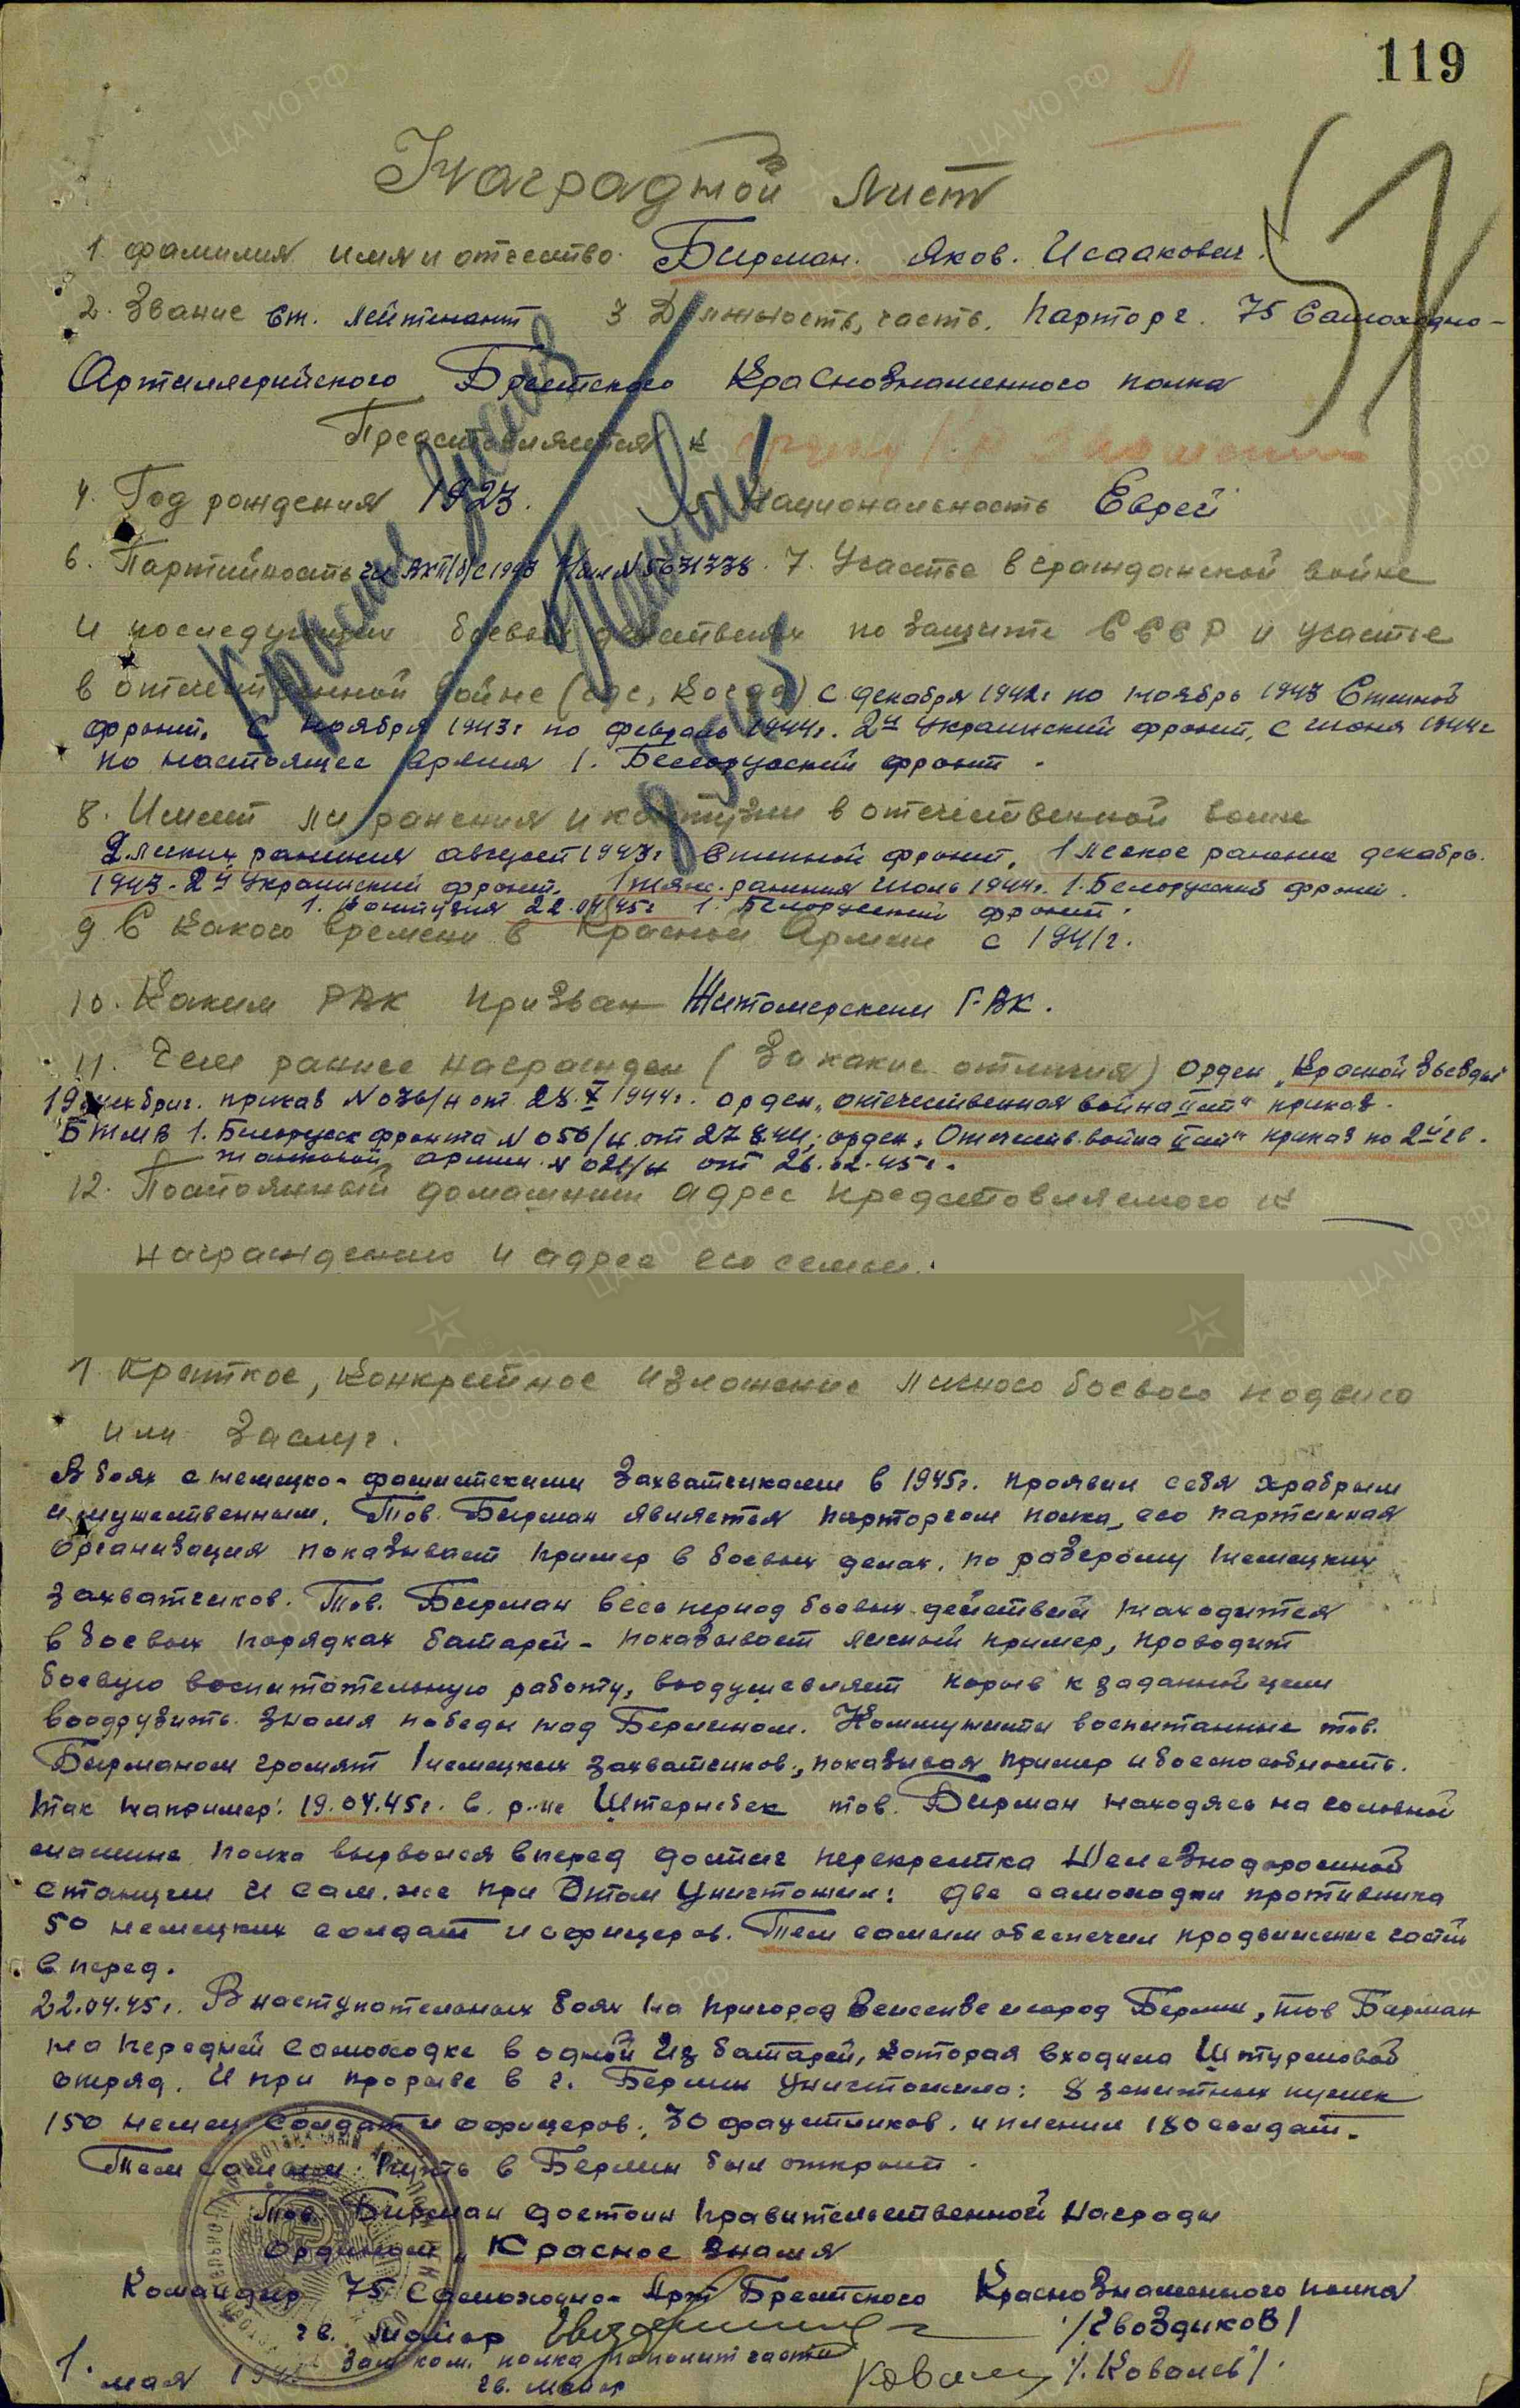 119
Л
51
Наградной лист
1. фамилия имя и отчество. Бирман. Яков. Исаакович.
2. Звание ст. лейтенант 3 Должность, часть. Парторг. 75 Самоходно-
Артиллерийского Брестского Краснознаменного полка
Представляется к ордену Кр Знамени
4. Год рождения 1923. Национальность Еврей
6. Партийность чл ВКП/б/ с 1943 7. Участие в гражданской войне
и последующих боевых действиях по защите СССР и участие
в отечественной войне (где, когда) с декабря 1942г по ноябрь 1943 Степной
фронт. С ноября 1943г по февраль 1944г. 2й Украинский фронт, с июня 1944г
по настоящее время 1. Белорусский фронт.
8. Имеет ли ранения и контузии в отечественной войне
2. легких ранения август 1943г Степной фронт. 1 легкое ранение декабрь.
1943-2й Украинский фронт. 1 тяж. ранения июль 1944г. 1. Белорусский фронт.
1. контузия 22.04.45г 1. Белорусский фронт.
9 С какого времени в Красной Армии с 1941г.
10. Каким РВК призван Житомерским ГВК.
11. Чем ранее награжден (за какие отличия) Орден „Красной Звезды"
приказ N 036/н от 28.X 1944г. орден „отечественная война II ст" приказ.
БТМВ 1. Белорусск фронта N 056/н от 27.8.44; орден „Отечеств. война II ст" приказ по 2й гв.
танковой армии N 021/н от 26.02.45г.
12. Постоянный домашний адрес представляемого к
награждению и адрес его семьи.
1. Краткое, конкретное изложение личного боевого подвига
или заслуг.
В боях с немецко-фашистскими захватчиками в 1945г. проявил себя храбрым
и мужественным. Тов. Бирман является парторгом полка, его партийная
организация показывает пример в боевых делах. по разгрому немецких
захватчиков. Тов. Бирман весь период боевых действий находится
в боевых порядках батарей - показывает личный пример, проводит
боевую воспитательную работу, воодушевляет порыв к заданной цели
воодрузить знамя победы над Берлином. Коммунисты воспитанные тов.
Бирманом громят немецких захватчиков, показывая пример и боеспособность.
так например: 19.04.45г. в р-не Штернебек тов. Бирман находясь на головной
машине полка вырвался вперед достиг перекрестка Железнодорожной
станции и сам же при этом уничтожил: две самоходки противника
50 немецких солдат и офицеров. Тем самым обеспечил продвижение части
вперед.
22.04.45г. В наступательных боях на пригород Вейсензее и город Берлин, тов Бирман
на передней самоходке в одной из батарей, которая входила Штурмовой
отряд. И при прорыве в г. Берлин уничтожило: 8 зенитных пушек
150 немец солдат и офицеров. 30 фаустников. и пленил 180 солдат.
Тем самым путь в Берлин был открыт.
Тов. Бирман достоин правительственной награды
Орденом „Красное Знамя
Командир 75 Самоходно-Арт Брестского Краснознаменного полка
гв. майор /Гвоздиков/
Зам ком. полка по полит части
гв. майор /Ковалев/
1. мая 194